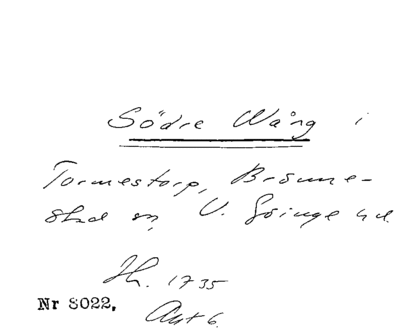 Södre Wång i
Tormestorp, Brönne-
stad sn, V. Göinge hd.
Sk. 1735
Nr 8022. Akt 6.